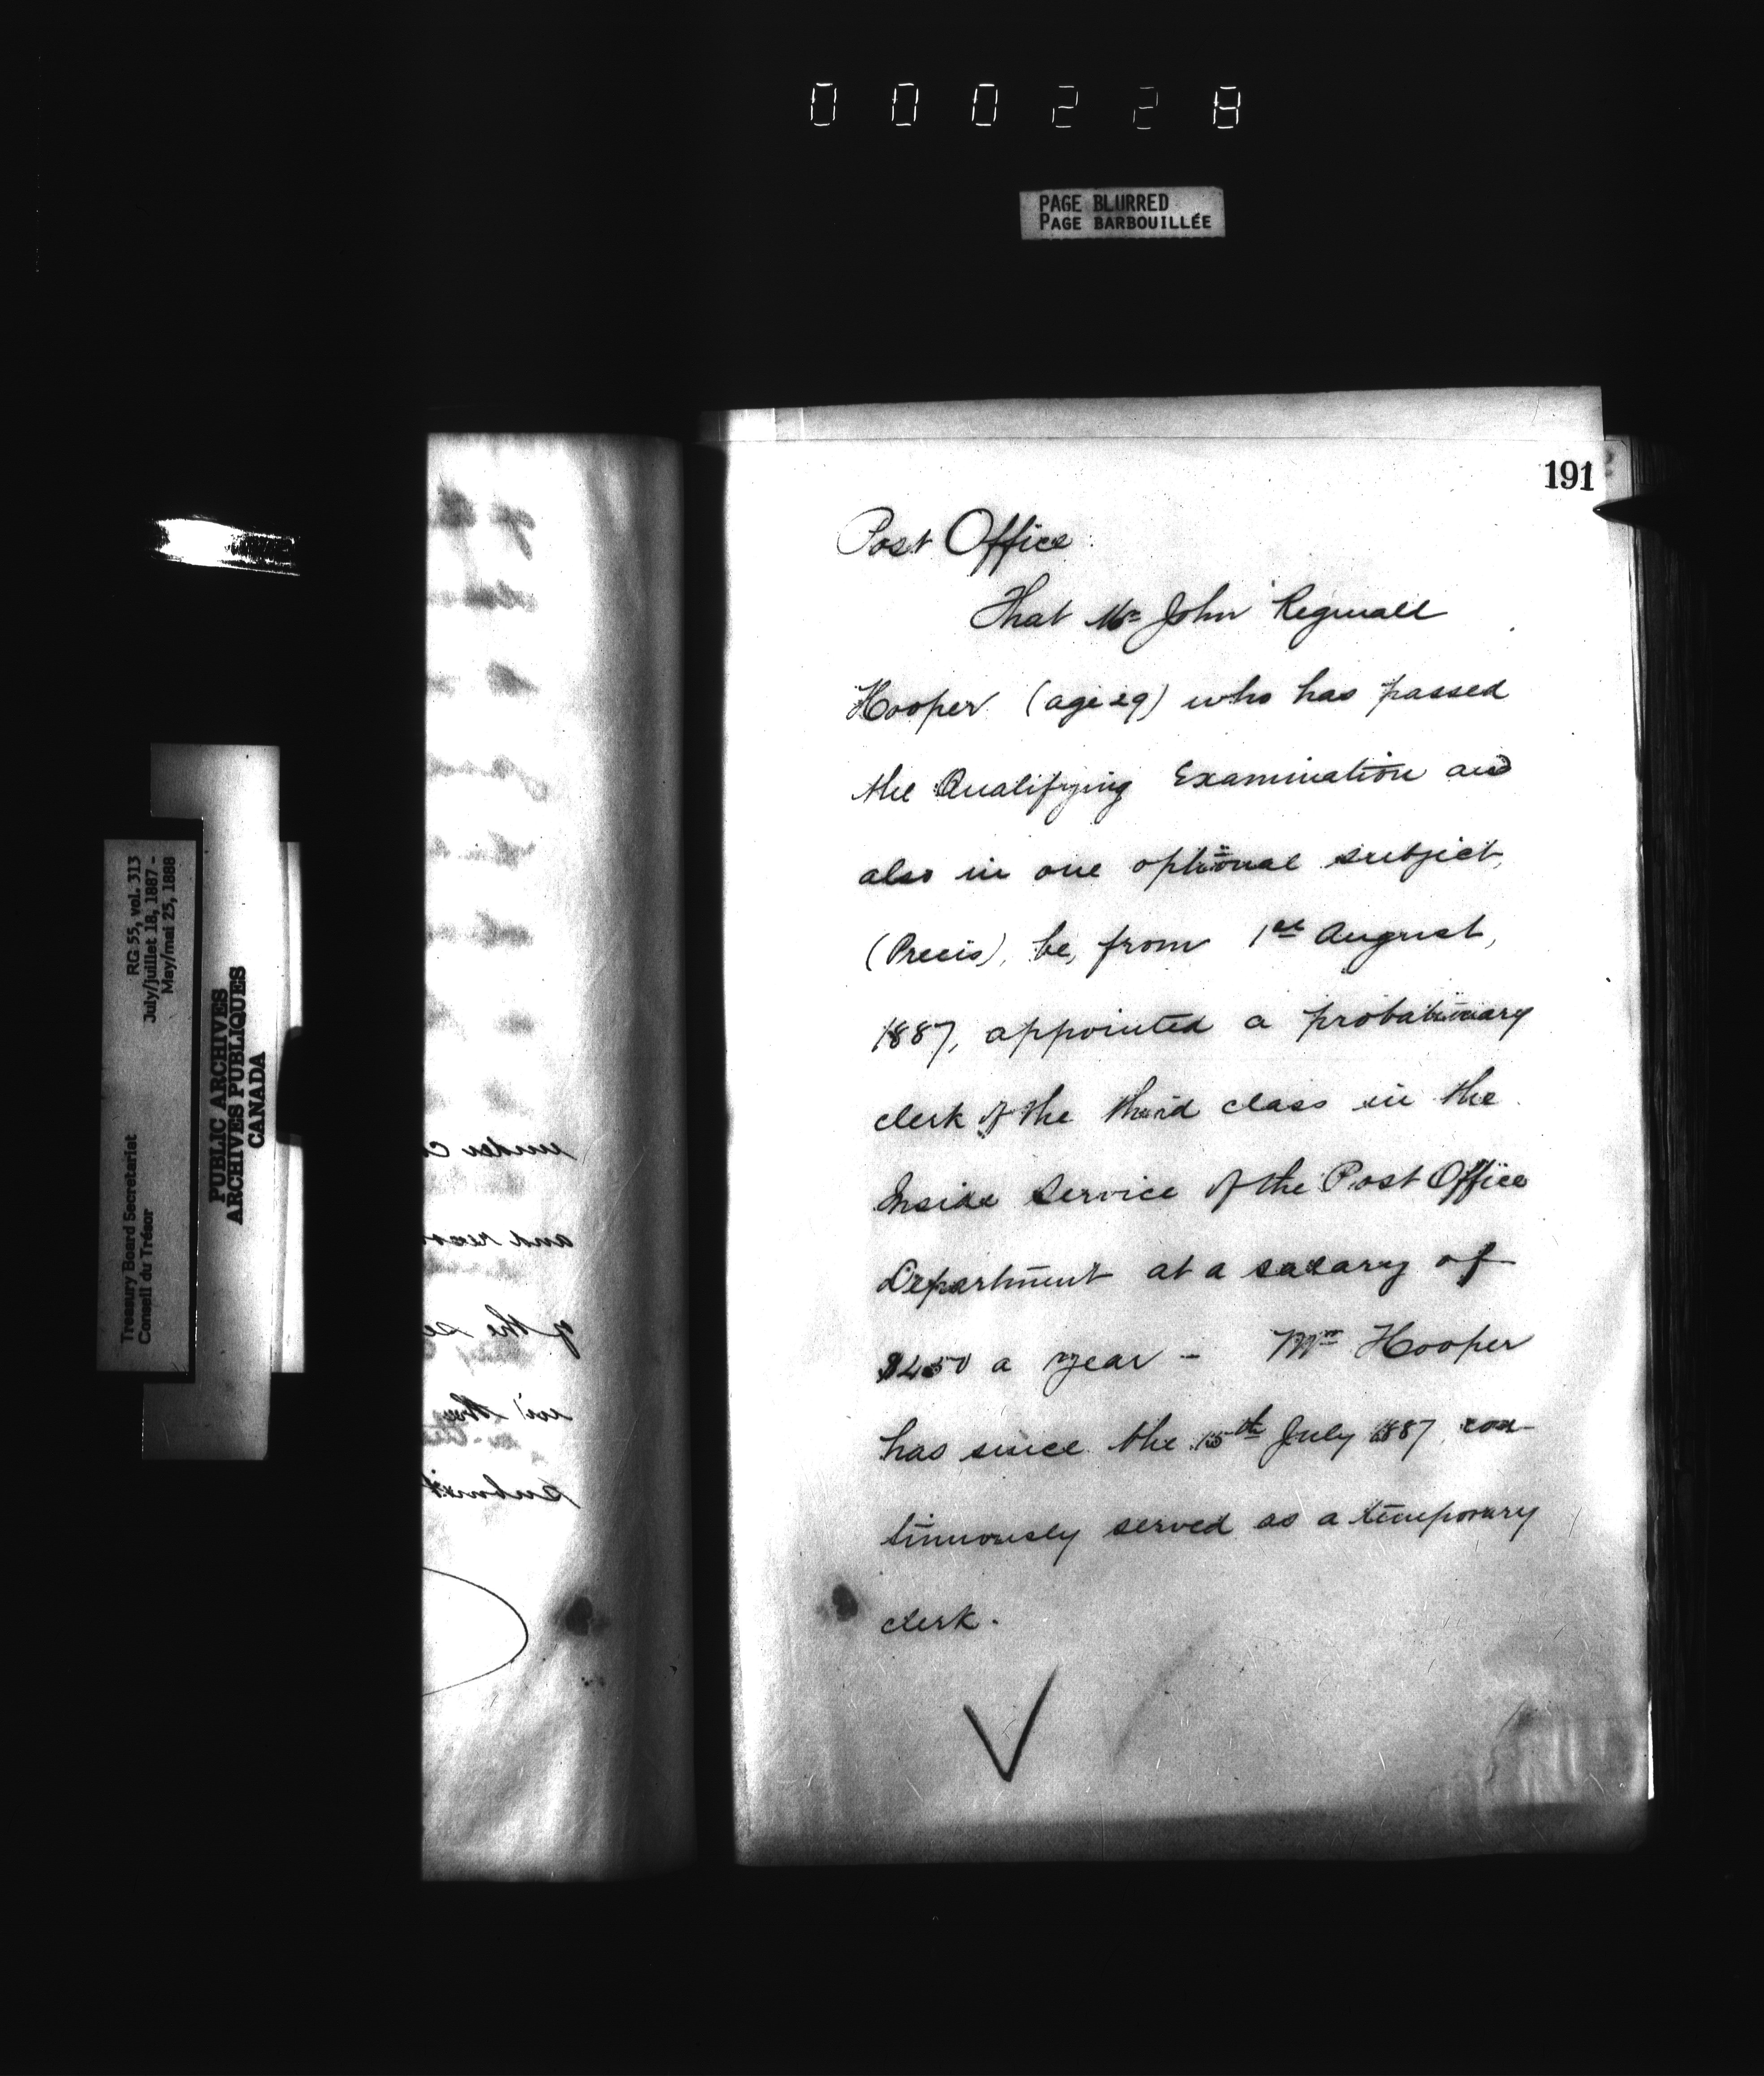 000228
PAGE BLURRED
PAGE BARBOUILLÉE
191
Post Office
That Mr John Reginald
Hooper (age 29) who has passed
the Qualifying Examination and
also in one optional subject,
(Precis), be, from 1st August,
1887, appointed a probationary
clerk of the third class in the
Inside Service of the Post Office
Department at a salary of
$450 a year - Mr Hooper
has since the 15th July 1887, con-
tinuously served as a temporary
clerk.
under
and
of the
in the
submit
RG 55, vol. 313
July/juillet 18, 1887 -
May/mai 25, 1888
Treasury Board Secretariat
Conseil du Trésor
PUBLIC ARCHIVES
ARCHIVES PUBLIQUES
CANADA